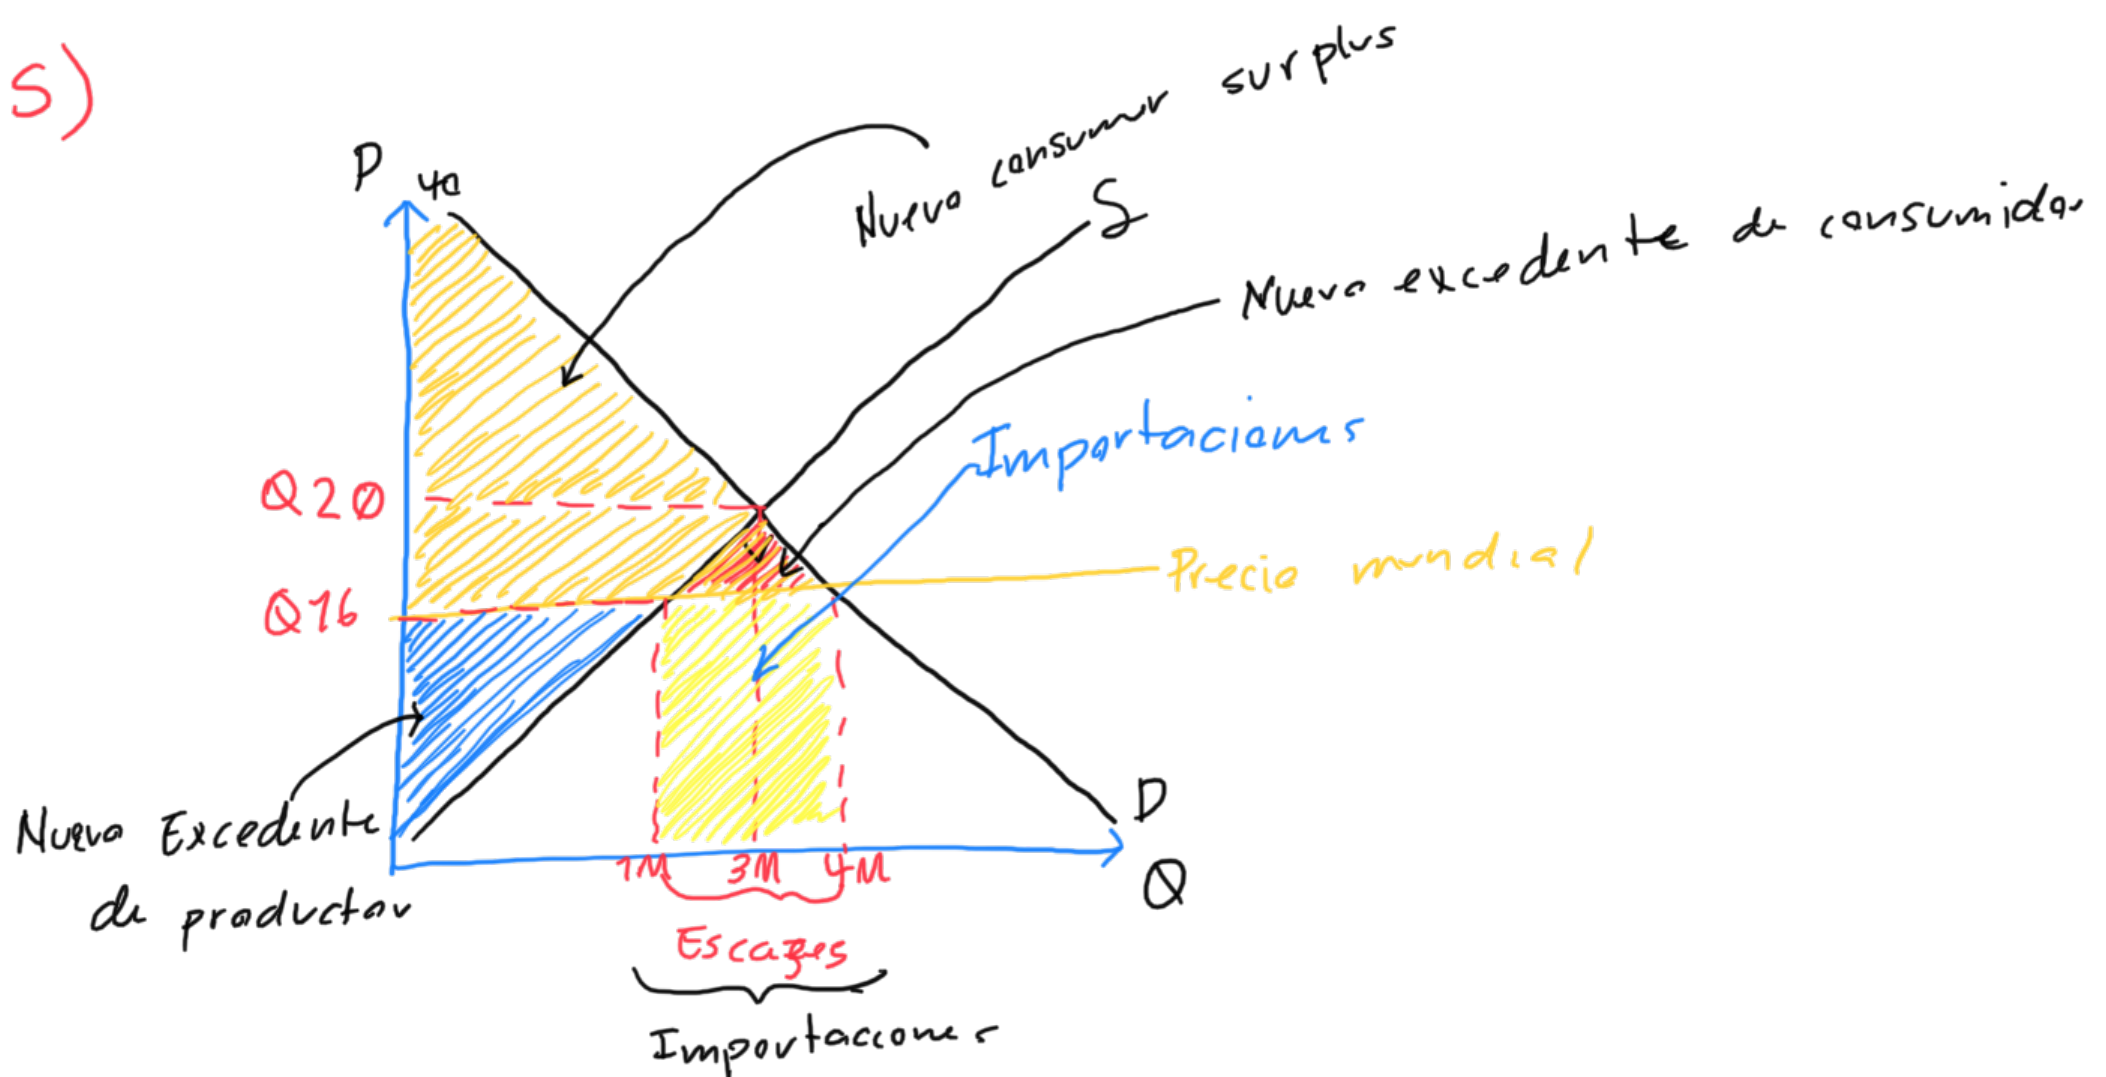 5)
P
40
Nuevo consumer surplus
S
Nuevo excedente de consumidor
Importaciones
Q20
Precio mundial
Q16
D
Nuevo Excedente
de productor
1M 3M 4M
Q
Escazes
Importaciones